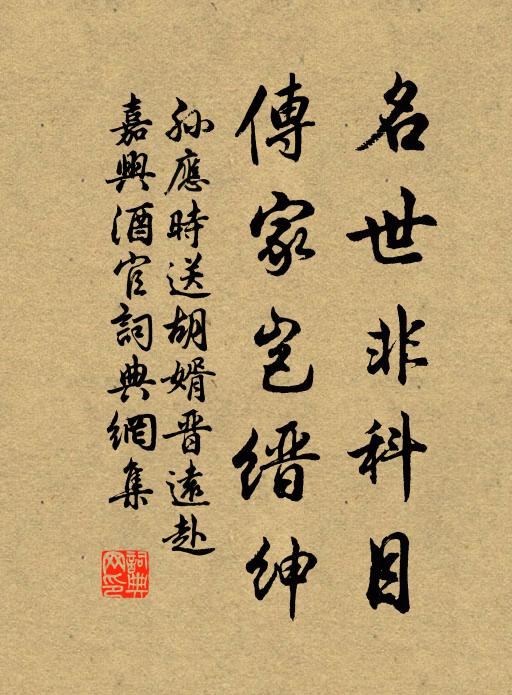 名世非科目
傳家豈縉紳
孫應時送胡婿晋遠赴
嘉興酒官詞典網集
詞典网印